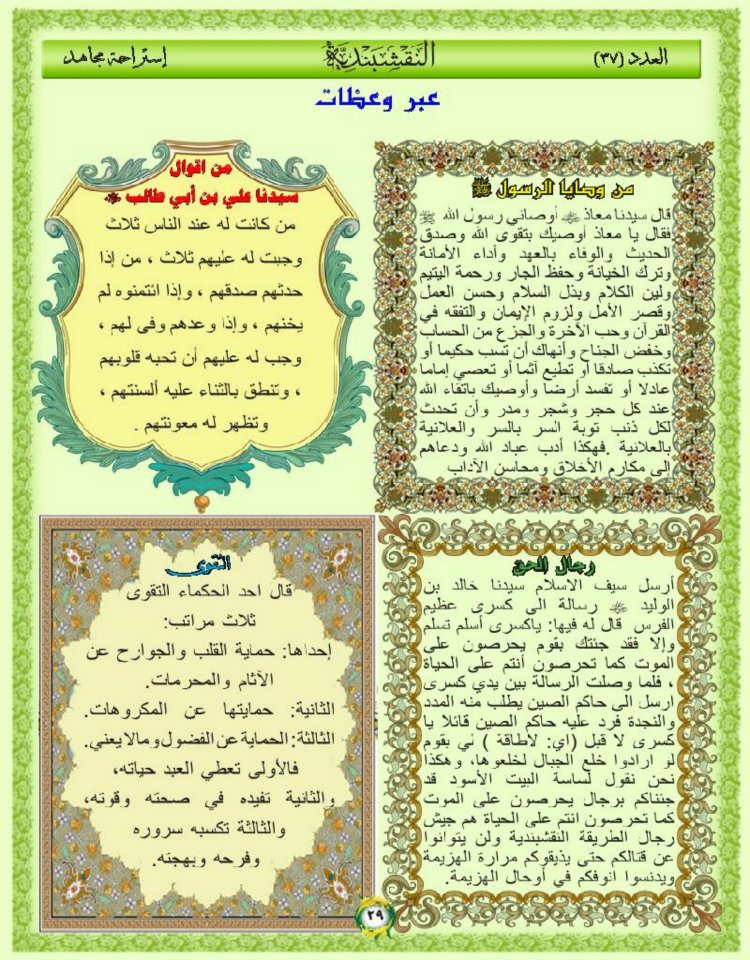 العدد (٣٧)
النقشبندية
إستراحة مجاهد
عبر وعظات
من وصايا الرسول ﷺ
قال سيدنا معاذ ﷺ أوصاني رسول الله ﷺ
فقال يا معاذ أوصيك بتقوى الله وصدق
الحديث والوفاء بالعهد وأداء الأمانة
وترك الخيانة وحفظ الجار ورحمة اليتيم
ولين الكلام وبذل السلام وحسن العمل
وقصر الأمل ولزوم الإيمان والتفقه في
القرآن وحب الآخرة والجزع من الحساب
وخفض الجناح وأنهاك أن تسب حكيما أو
تكذب صادقا أو تطيع آثما أو تعصي إماما
عادلا أو تفسد أرضا وأوصيك باتقاء الله
عند كل حجر وشجر ومدر وأن تحدث
لكل ذنب توبة السر بالسر والعلانية
بالعلانية .فهكذا أدب عباد الله ودعاهم
إلى مكارم الأخلاق ومحاسن الآداب
من اقوال
سيدنا علي بن أبي طالب
من كانت له عند الناس ثلاث
وجبت له عليهم ثلاث ، من إذا
حدثهم صدقهم ، وإذا ائتمنوه لم
يخنهم ، وإذا وعدهم وفى لهم ،
وجب له عليهم أن تحبه قلوبهم
، وتنطق بالثناء عليه ألسنتهم ،
وتظهر له معونتهم .
رجال الحق
أرسل سيف الاسلام سيدنا خالد بن
الوليد رسالة الى كسرى عظيم
الفرس قال له فيها: ياكسرى أسلم تسلم
وإلا فقد جئتك بقوم يحرصون على
الموت كما تحرصون أنتم على الحياة
، فلما وصلت الرسالة بين يدي كسرى
ارسل الى حاكم الصين يطلب منه المدد
والنجدة فرد عليه حاكم الصين قائلا يا
كسرى لا قبل (اي: لاطاقة ) لي بقوم
لو ارادوا خلع الجبال لخلعوها، وهكذا
نحن نقول لساسة البيت الأسود قد
جئناكم برجال يحرصون على الموت
كما تحرصون انتم على الحياة هم جيش
رجال الطريقة النقشبندية ولن يتوانوا
عن قتالكم حتى يذيقوكم مرارة الهزيمة
ويدنسوا انوفكم في أوحال الهزيمة.
التقوى
قال احد الحكماء التقوى
ثلاث مراتب:
إحداها: حماية القلب والجوارح عن
الآثام والمحرمات.
الثانية: حمايتها عن المكروهات.
الثالثة: الحماية عن الفضول ومالايعني.
فالأولى تعطي العبد حياته،
والثانية تفيده في صحته وقوته،
والثالثة تكسبه سروره
وفرحه وبهجته.
٢٩